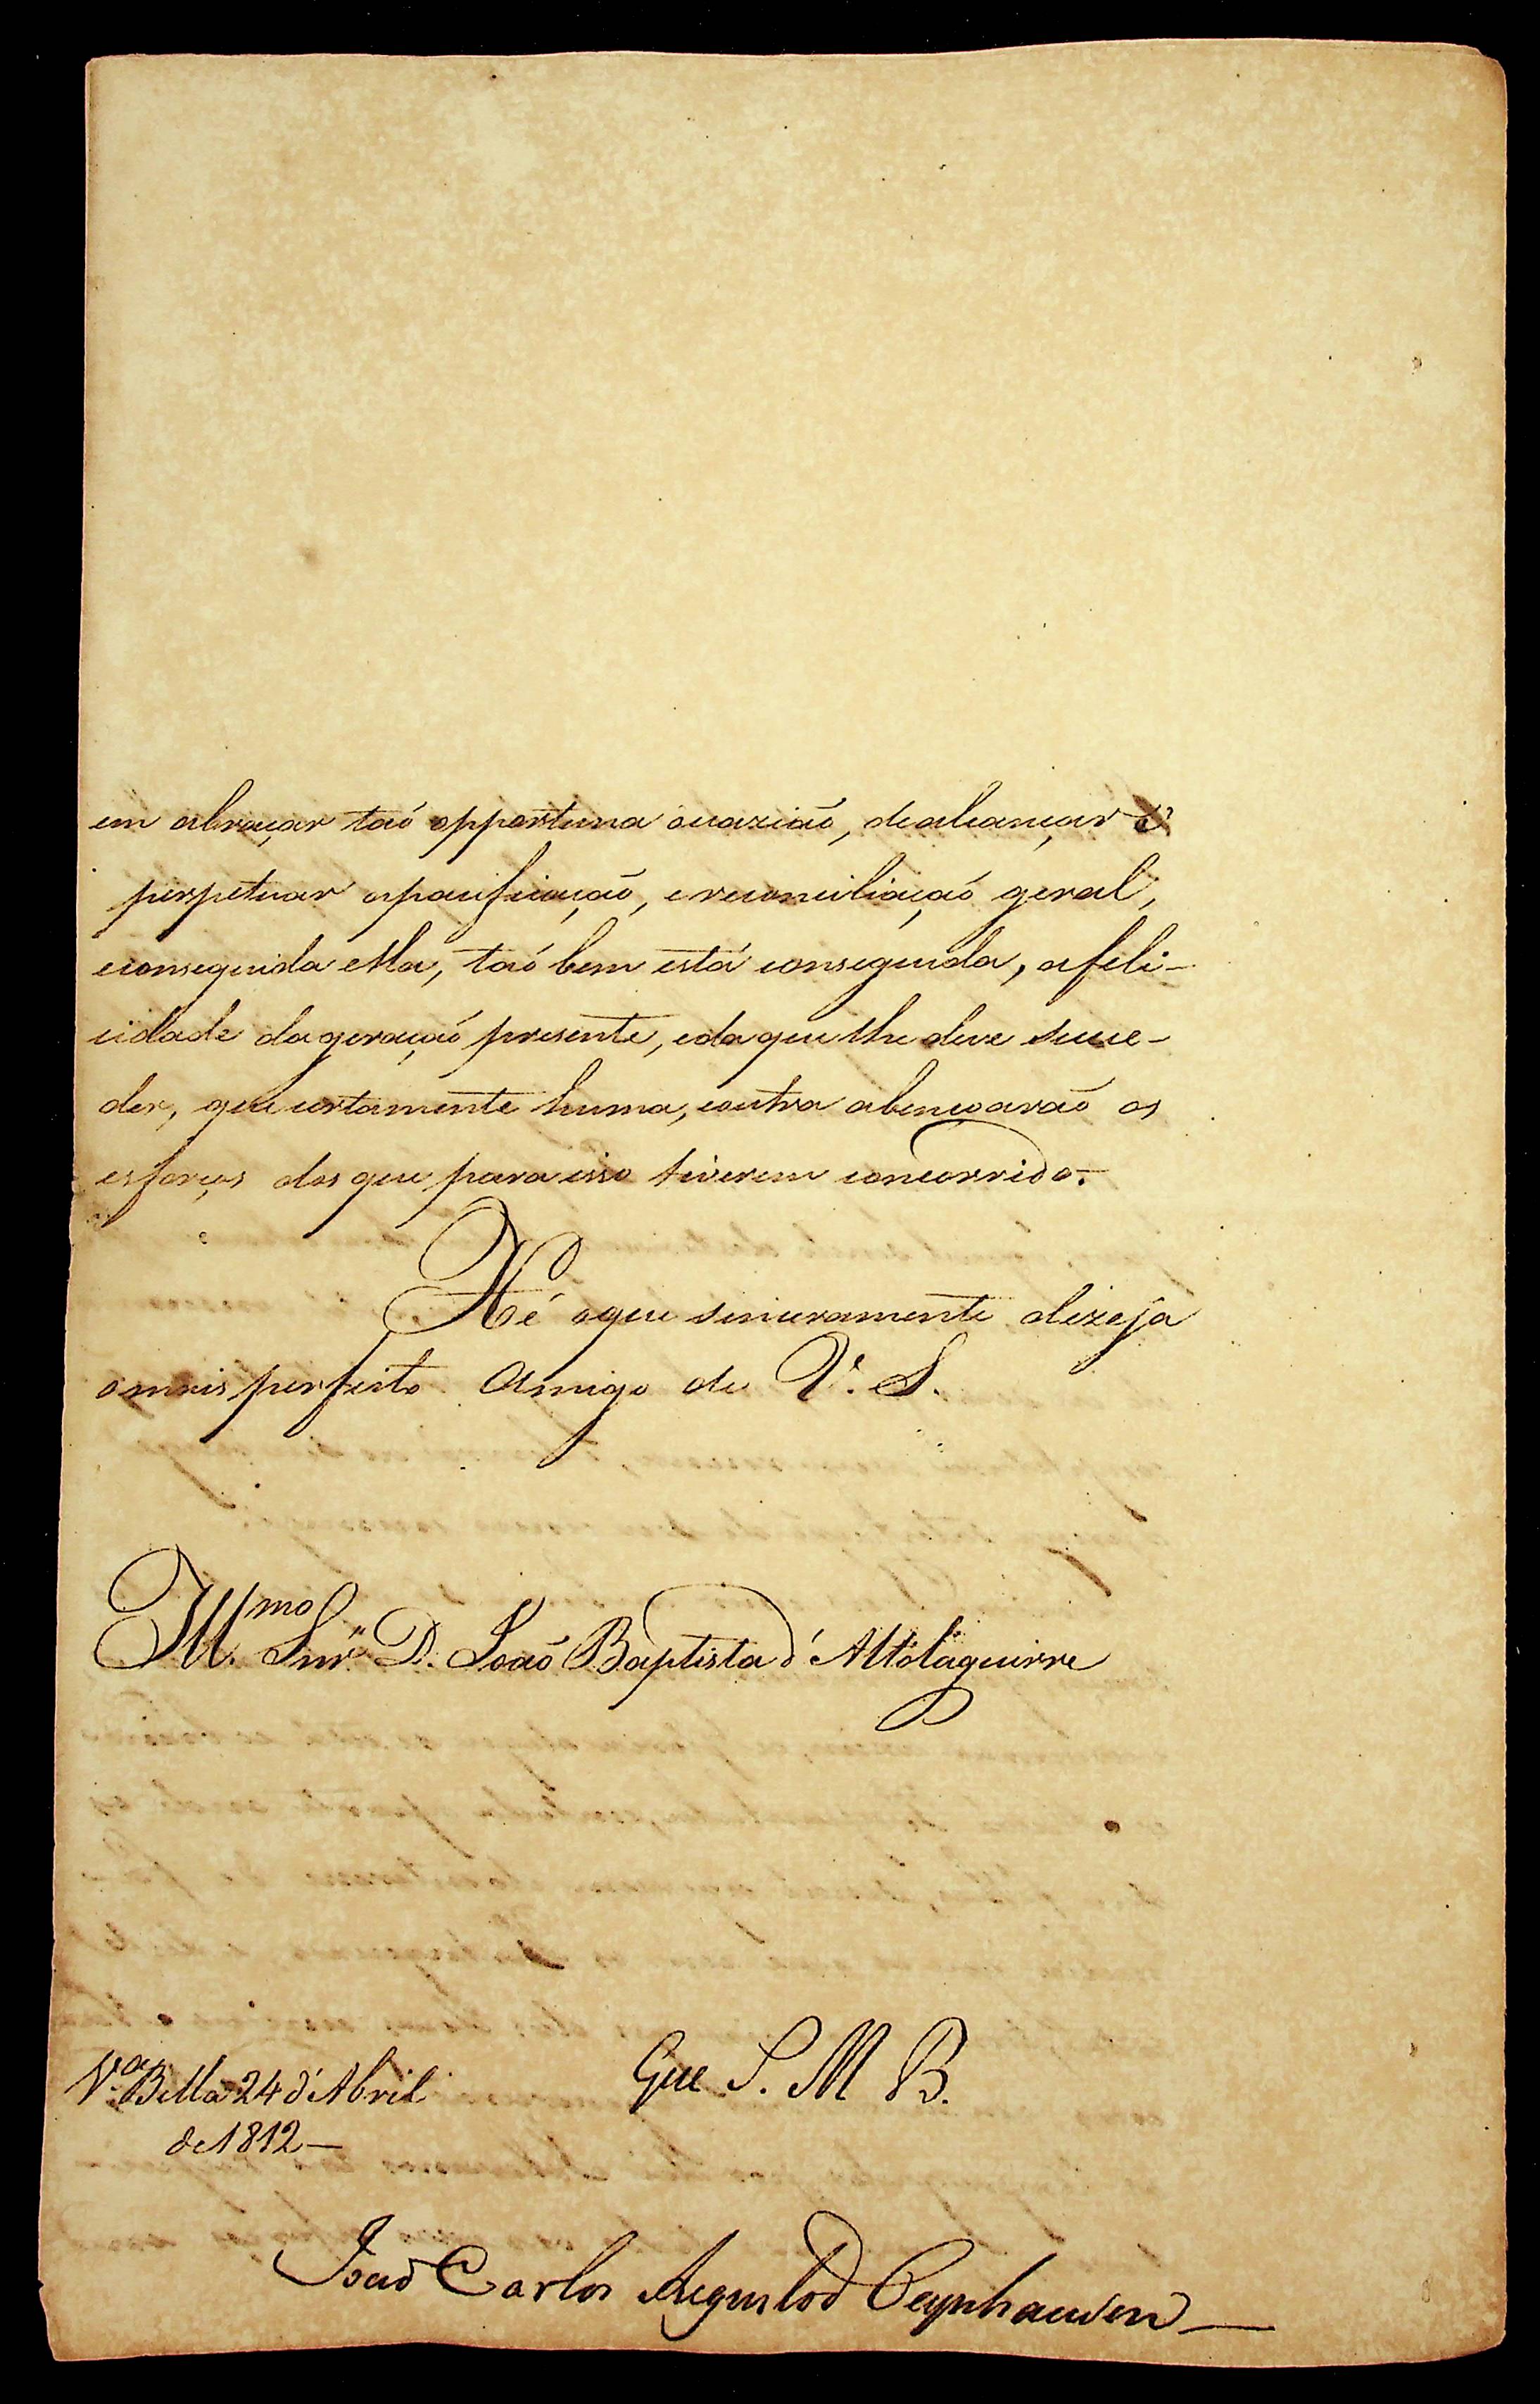 em abraçar taó opportuna occaziaõ, de alcançar e
perpetuar apacificaçaõ, e reconciliaçaó geral,
conseguida ella, taó bem está conseguida, afeli-
cidade dageraçaó presente, eda que lhe deve suce-
der, que certamente huma, eoutra abençoaraõ os
esforços dos que para isso tiverem concorrido.
Hé oque sinceramente dezeja
omais perfeito Amigo de V. S.
Ill.mo Snr. D. Joaõ Baptista d' Altolaguirre
Que S. M. B.
V.a Bella 24 d'Abril
de 1812—
Joaõ Carlos Augusto d'Oeynhausen—